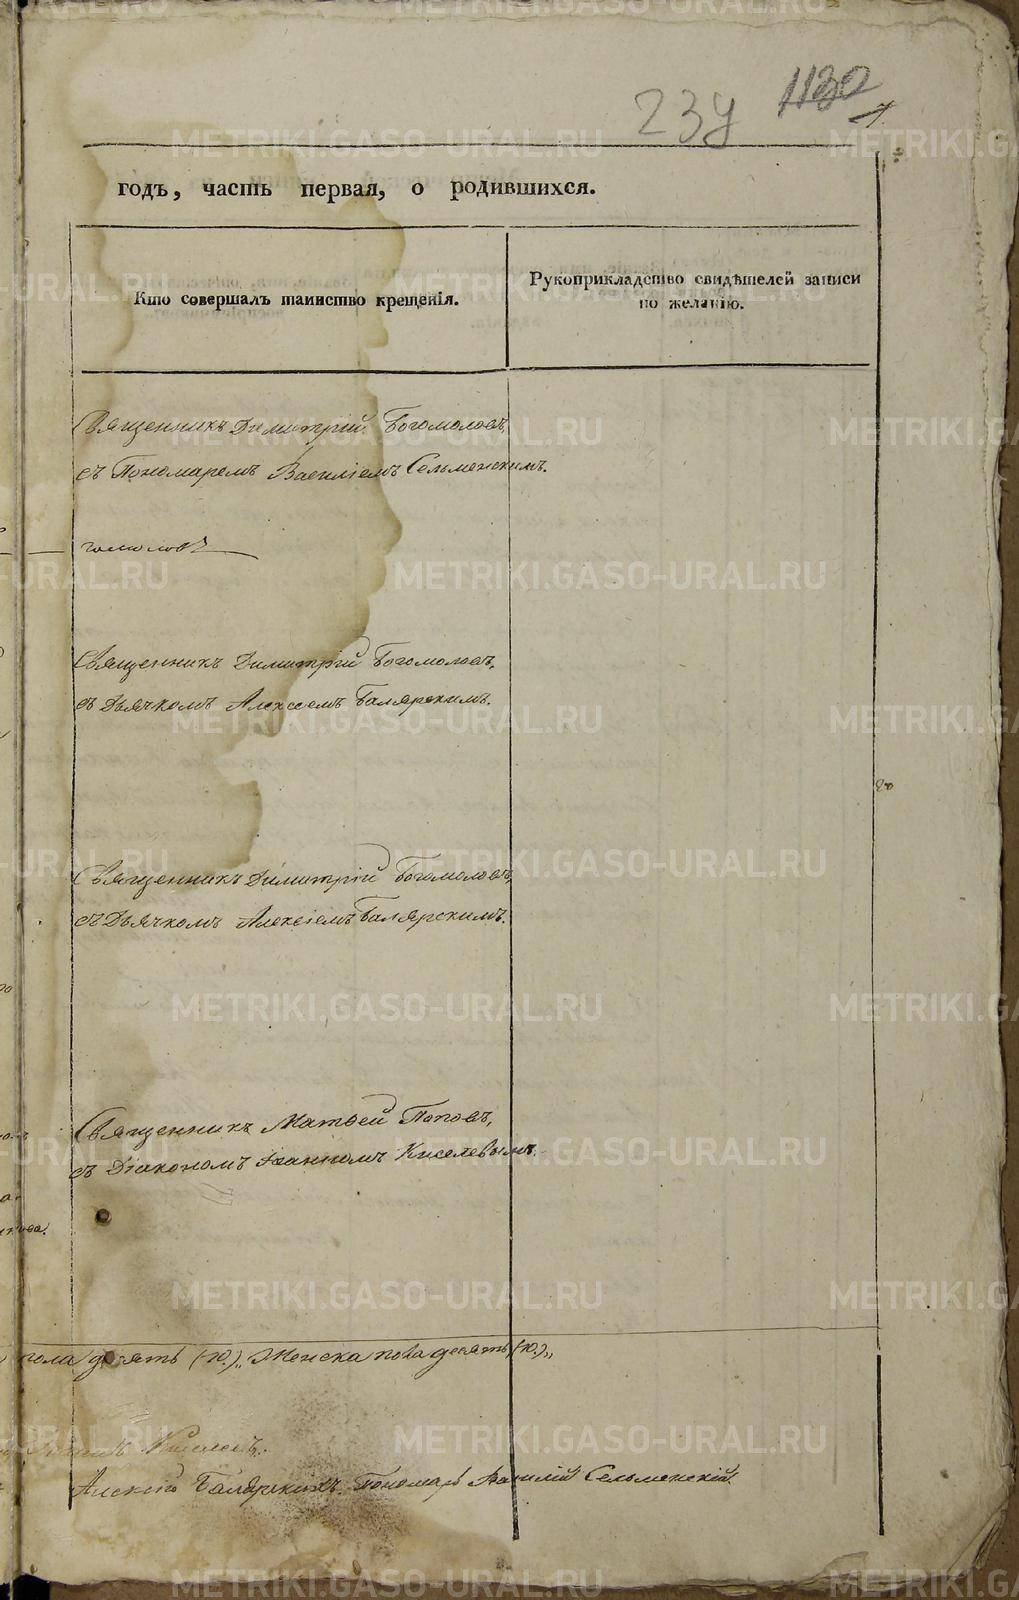 239 1180
годъ, часть первая, о родившихся.
Кто совершалъ таинство крещенія.
Рукоприкладство свидѣтелей записи по желанію.
Священникъ Димитрій Богомоловъ,
съ Пономаремъ Василіемъ Сельменскимъ.
гомоловъ
Священникъ Димитрій Богомоловъ,
съ Дьячкомъ Алексеемъ Балярскимъ.
Священникъ Димитрій Богомоловъ,
съ Дьячкомъ Алексіемъ Балярскимъ.
Священникъ Матвей Поповъ,
съ Діакономъ Іоанномъ Киселевымъ.
пола десять (10.),, Женска пола десять (10.),,
Киселевъ.
Алексій Балярскій. Пономарь Василій Сельменскій.
METRIKI.GASO-URAL.RU